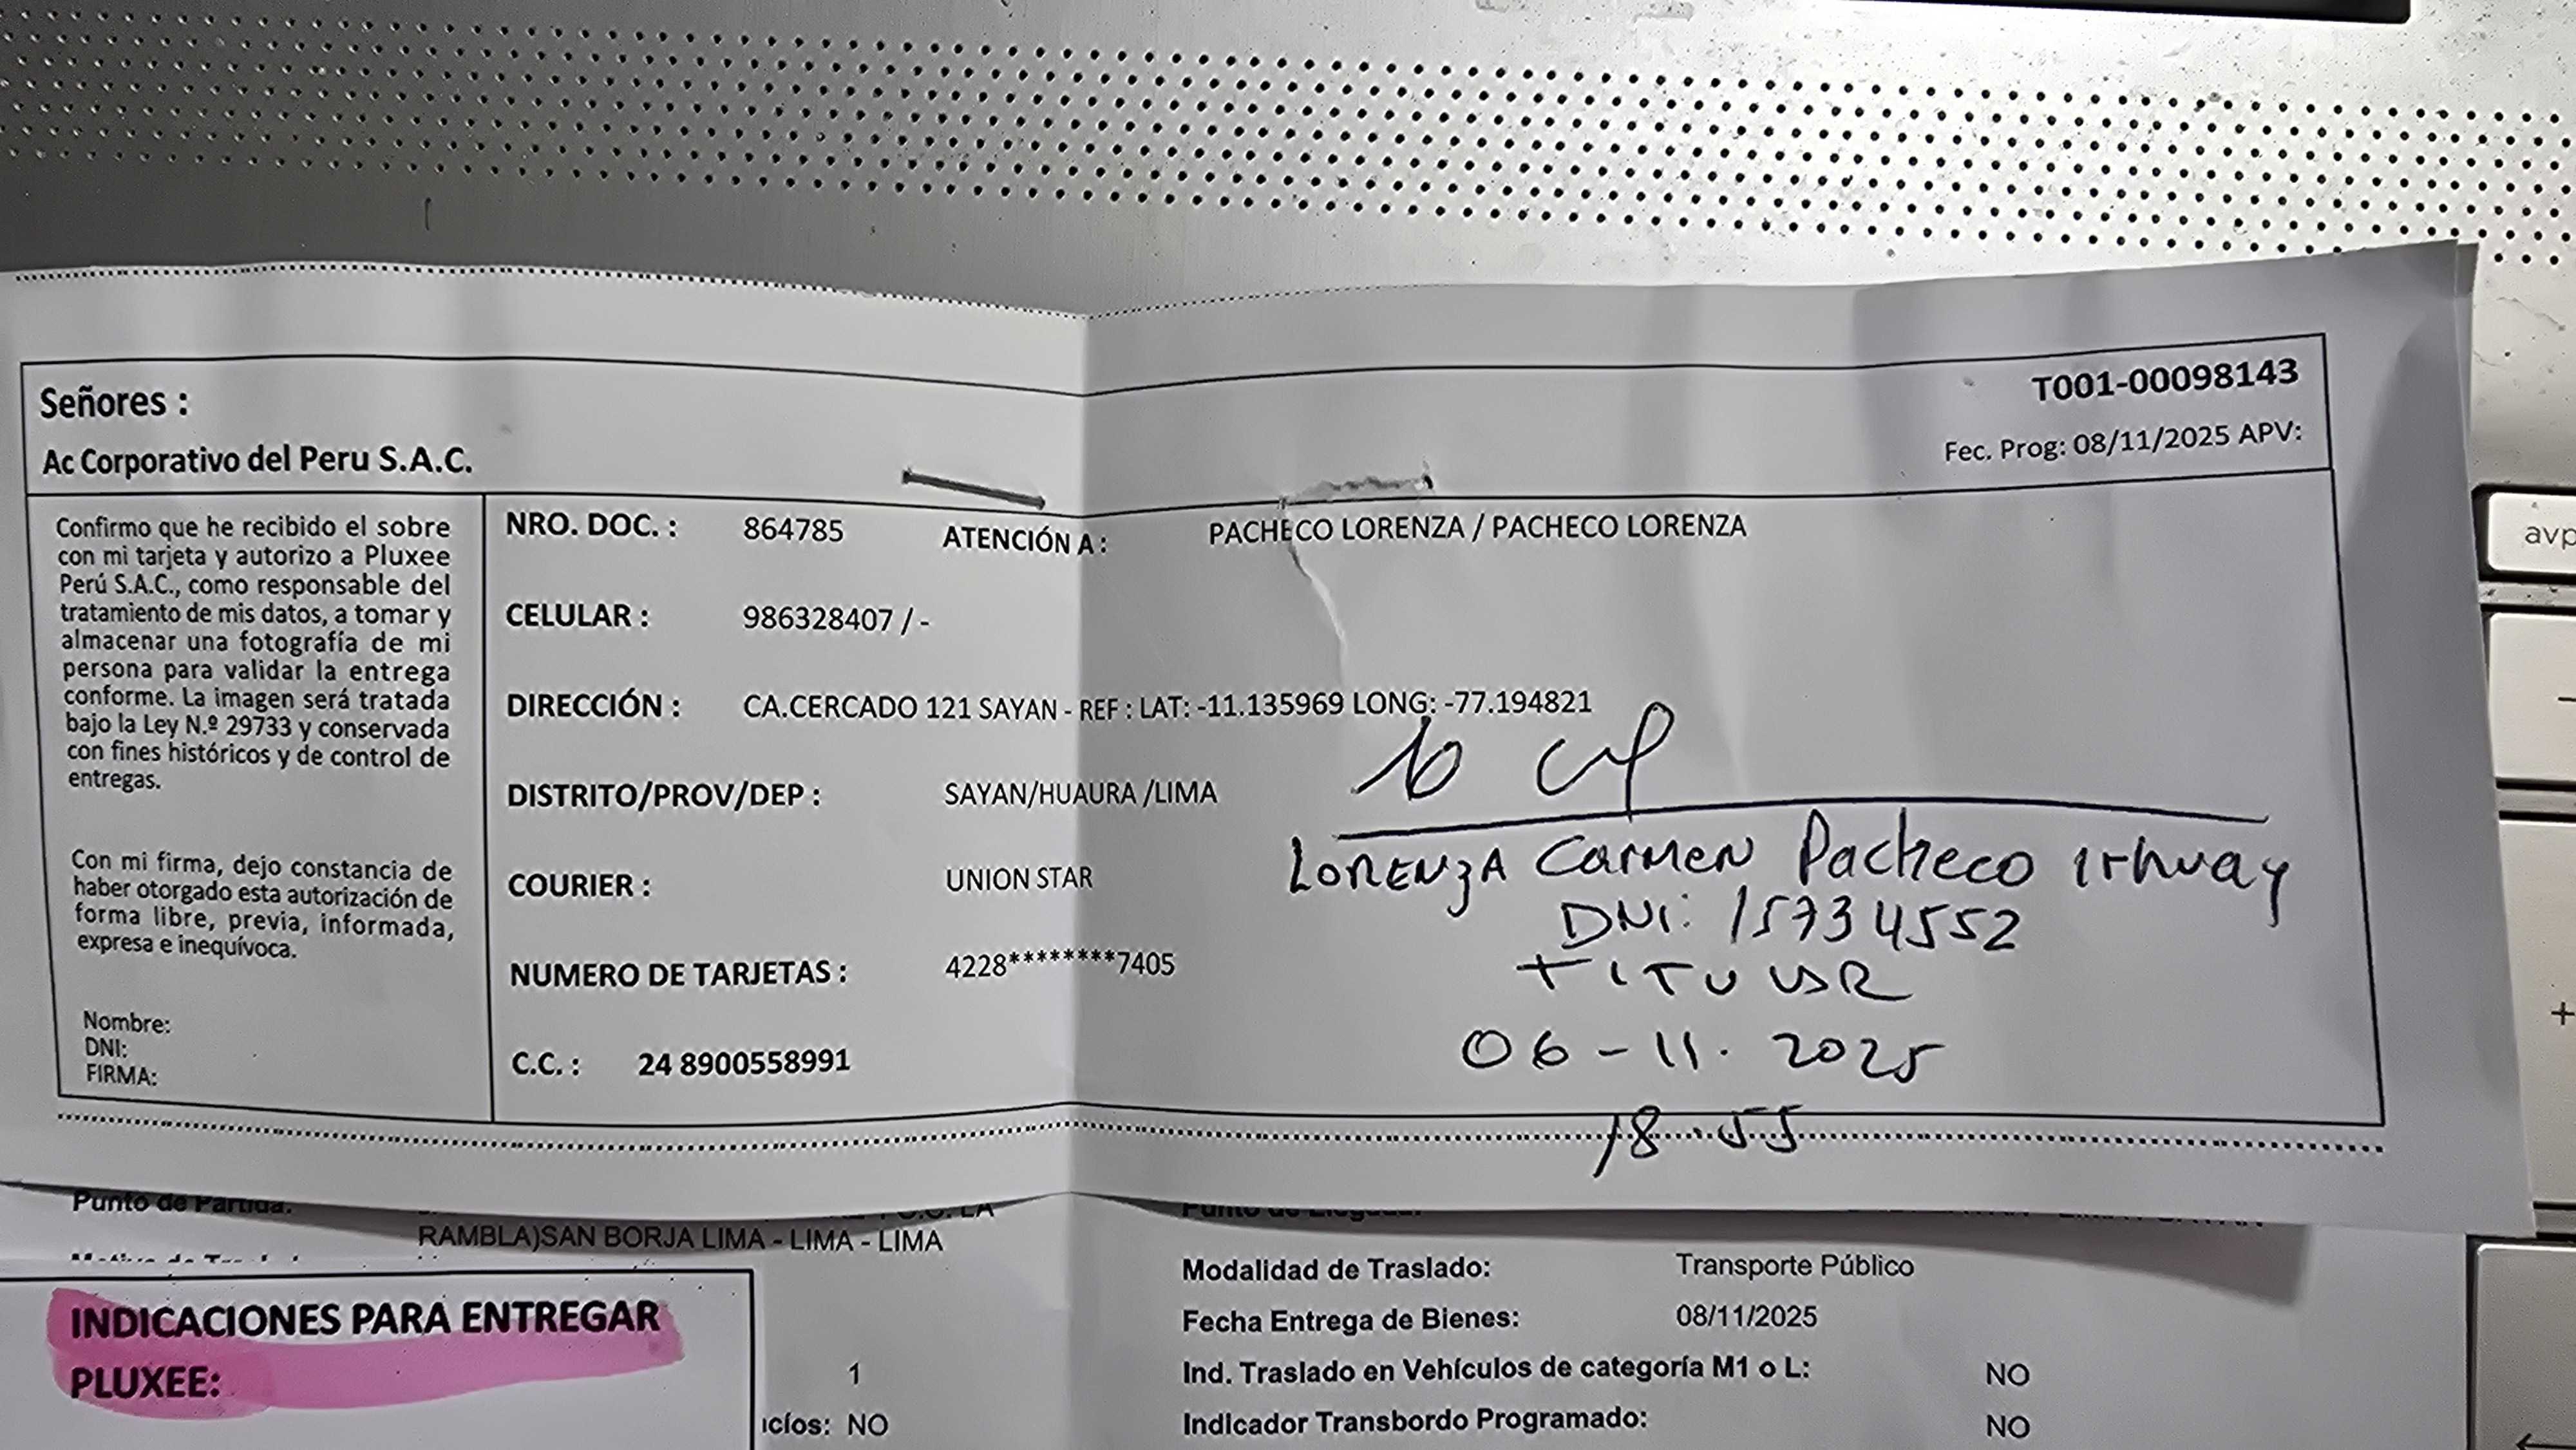 T001-00098143
Señores :
Fec. Prog: 08/11/2025 APV:
Ac Corporativo del Peru S.A.C.
Confirmo que he recibido el sobre
con mi tarjeta y autorizo a Pluxee
Perú S.A.C., como responsable del
tratamiento de mis datos, a tomar y
almacenar una fotografía de mi
persona para validar la entrega
conforme. La imagen será tratada
bajo la Ley N.º 29733 y conservada
con fines históricos y de control de
entregas.
Con mi firma, dejo constancia de
haber otorgado esta autorización de
forma libre, previa, informada,
expresa e inequívoca.
Nombre:
DNI:
FIRMA:
NRO. DOC. : 864785 ATENCIÓN A : PACHECO LORENZA / PACHECO LORENZA
CELULAR : 986328407 / -
DIRECCIÓN : CA.CERCADO 121 SAYAN - REF : LAT: -11.135969 LONG: -77.194821
DISTRITO/PROV/DEP : SAYAN/HUAURA /LIMA
COURIER : UNION STAR
NUMERO DE TARJETAS : 4228********7405
C.C. : 24 8900558991
LORENZA Carmen Pacheco Irhuay
DNI: 15734552
TITULAR
06-11. 2025
18:55
Punto de Partida:
RAMBLA)SAN BORJA LIMA - LIMA - LIMA
INDICACIONES PARA ENTREGAR
PLUXEE:
1
NO
Punto de Llegada:
Modalidad de Traslado: Transporte Público
Fecha Entrega de Bienes: 08/11/2025
Ind. Traslado en Vehículos de categoría M1 o L: NO
Indicador Transbordo Programado: NO
avp
-
+